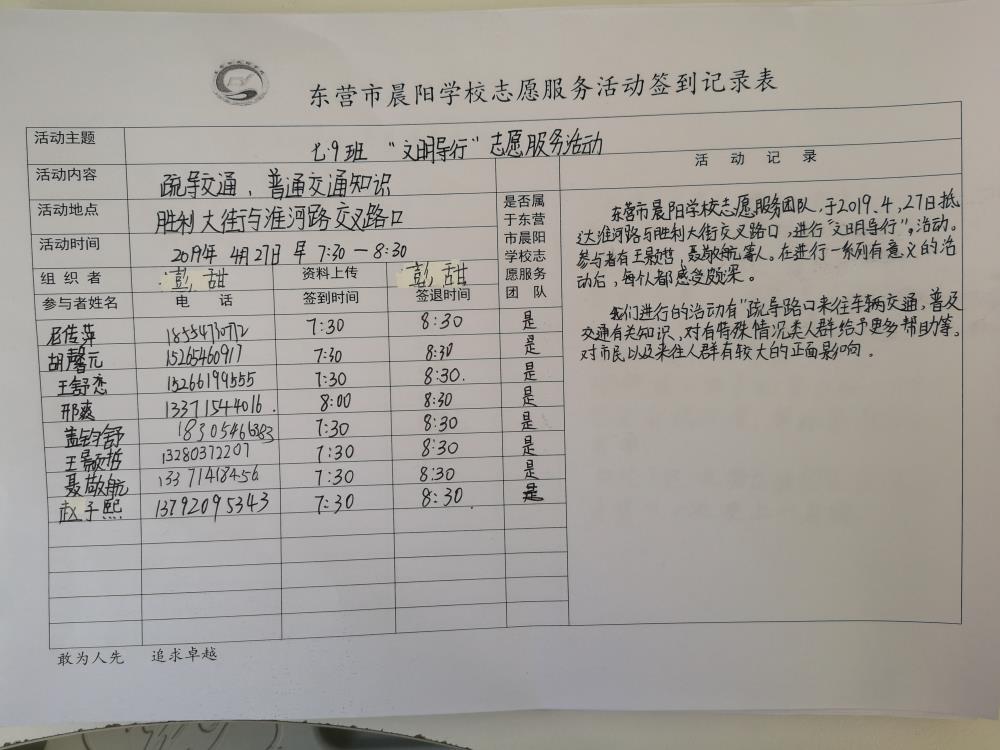 东营市晨阳学校志愿服务活动签到记录表
活动主题 七.9班 "文明导行"志愿服务活动
活动内容 疏导交通、普通交通知识
活动地点 胜利大街与淮河路交叉路口
活动时间 2019年 4月27日 早 7:30—8:30
组织者 彭甜 资料上传 彭甜
参与者姓名 电话 签到时间 签退时间
是否属
于东营
市晨阳
学校志
愿服务
团队
传萍 18554710712 7:30 8:30 是
胡馨元 15265460917 7:30 8:30 是
王舒恋 15266199555 7:30 8:30. 是
邢爽 13371544016. 8:00 8:30 是
盖钧舒 18305466383 7:30 8:30 是
王景颐哲 13280372207 7:30 8:30 是
聂敬航 13371418456 7:30 8:30 是
赵子熙 13792095343 7:30 8:30. 是
活动记录
东营市晨阳学校志愿服务团队,于2019.4,27日抵
达淮河路与胜利大街交叉路口,进行"文明导行"。活动。
参与者有王颢哲,聂敬航等人。在进行一系列有意义的活
动后,每个人都感受颇深。
我们进行的活动有"疏导路口来往车辆交通,普及
交通有关知识、对有特殊情况类人群给予更多帮助等。
对市民以及来往人群有较大的正面影响。
敢为人先 追求卓越